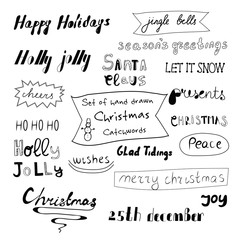 Happy Holidays
jingle bells
season's greetings
Holly jolly
SANTA
CLAUS
LET IT SNOW
cheers
presents
Set of hand drawn
Christmas
Catchwords
HO HO HO
CHRISTMAS
HOLLY
JOLLY
wishes
Glad Tidings
Peace
merry christmas
Christmas
JOY
25th december